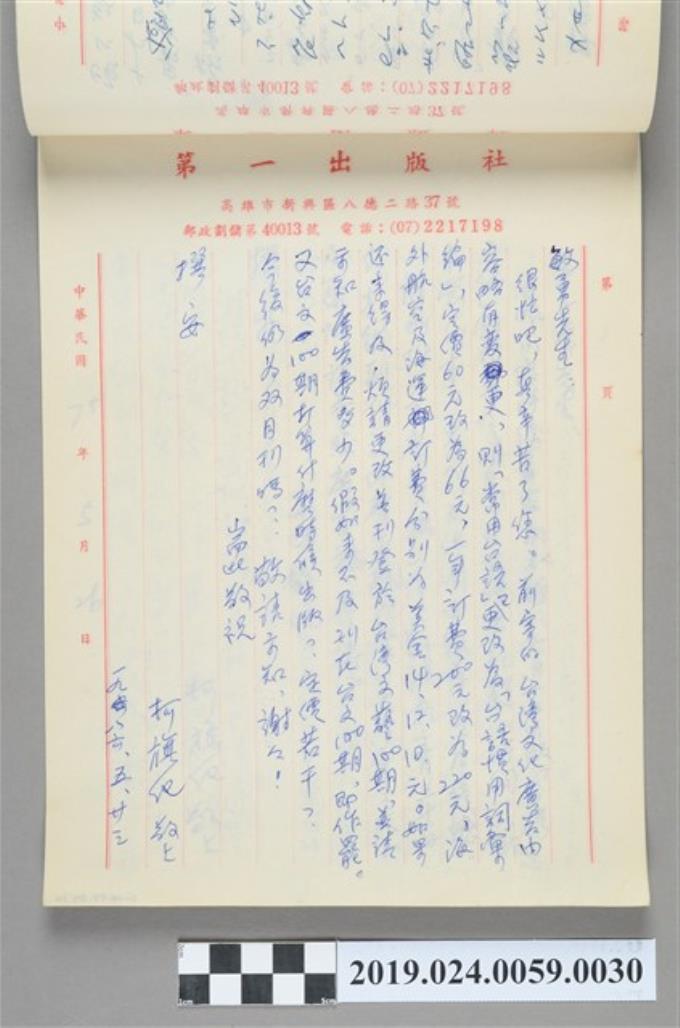 第一出版社
高雄市新興區八德二路37號
郵政劃儲第40013號 電話：(07)2217198
第 頁
敏勇先生：
很忙吧，真辛苦了您。前寄的台灣文化廣告內
容略有變更，則「常用台語」更改為「台語慣用詞彙
編」，定價60元改為66元，一年訂費200元改為220元，海
外航空及海運訂費分別為美金14、12、10、元。如果
还來得及，煩請更改並刊登於台湾文藝100期，並請
示知廣告費多少。假如來不及刊在台文100期，即作罷。
又台文100期打算什麼時候出版？定價若干？
今後仍為双月刊嗎？敬請示知，謝々！
耑此敬祝
撰安
柯旗化敬上
一九八六、五、廿三
中華民國 75 年 5 月 26 日
郵政劃儲第40013號 電話：(07)2217198
高雄市新興區八德二路37號
2019.024.0059.0030
1cm
5cm